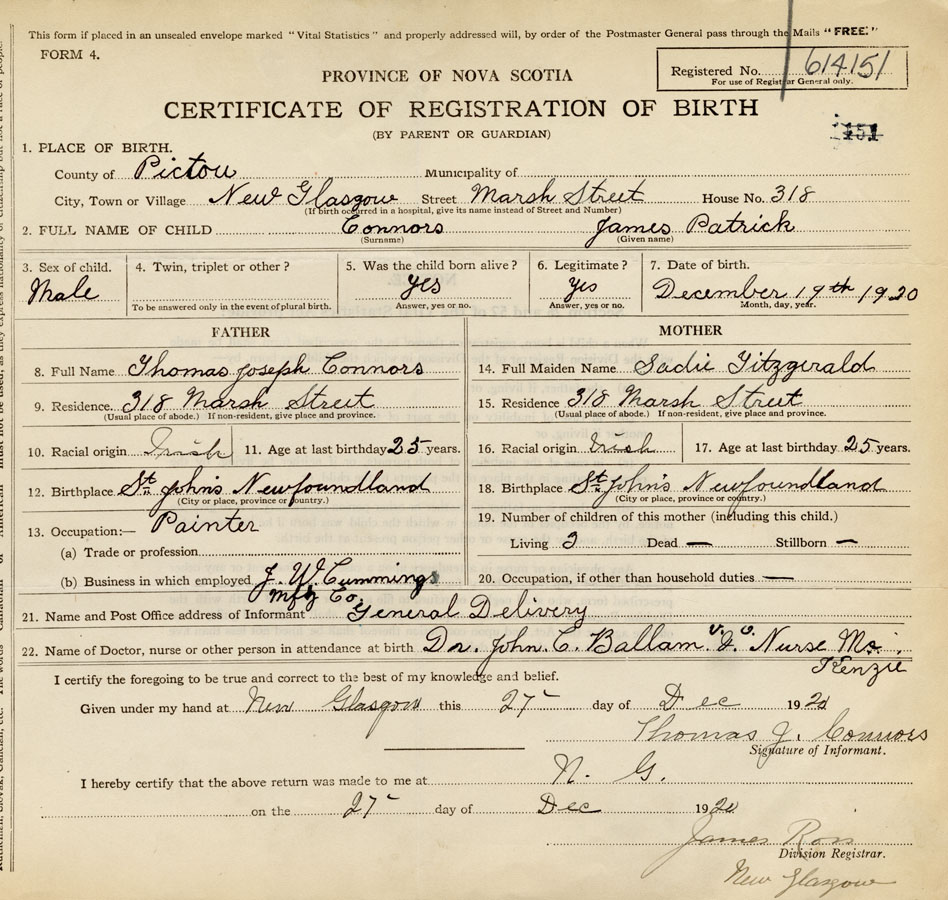 This form if placed in an unsealed envelope marked "Vital Statistics" and properly addressed will, by order of the Postmaster General pass through the Mails "FREE."
FORM 4.
Registered No. 614151
For use of Registrar General only.
PROVINCE OF NOVA SCOTIA
CERTIFICATE OF REGISTRATION OF BIRTH
(BY PARENT OR GUARDIAN)
151
1. PLACE OF BIRTH.
County of Pictou Municipality of
City, Town or Village New Glasgow Street Marsh Street House No. 318
(If birth occurred in a hospital, give its name instead of Street and Number)
2. FULL NAME OF CHILD Connors James Patrick
(Surname) (Given name)
3. Sex of child. 4. Twin, triplet or other? 5. Was the child born alive? 6. Legitimate? 7. Date of birth.
Male Yes Yes December 19th 1920
To be answered only in the event of plural birth. Answer, yes or no. Answer, yes or no. Month, day, year.
FATHER MOTHER
8. Full Name Thomas Joseph Connors 14. Full Maiden Name Sadie Fitzgerald
9. Residence 318 Marsh Street 15. Residence 318 Marsh Street
(Usual place of abode.) If non-resident, give place and province. (Usual place of abode.) If non-resident, give place and province.
10. Racial origin Irish 11. Age at last birthday 25 years. 16. Racial origin Irish 17. Age at last birthday 25 years.
12. Birthplace St. John's Newfoundland 18. Birthplace St. John's Newfoundland
(City or place, province or country.) (City or place, province or country.)
13. Occupation:— Painter 19. Number of children of this mother (including this child.)
(a) Trade or profession Living 3 Dead — Stillborn —
(b) Business in which employed J. W. Cummings 20. Occupation, if other than household duties —
mfg Co,
21. Name and Post Office address of Informant General Delivery
22. Name of Doctor, nurse or other person in attendance at birth Dr. John C. Ballam Nurse Mc.
Kenzie
I certify the foregoing to be true and correct to the best of my knowledge and belief.
Given under my hand at New Glasgow this 27 day of Dec 1920
Thomas J. Connors
Signature of Informant.
I hereby certify that the above return was made to me at N. G.
on the 27 day of Dec 1920
James Ross
Division Registrar.
New Glasgow